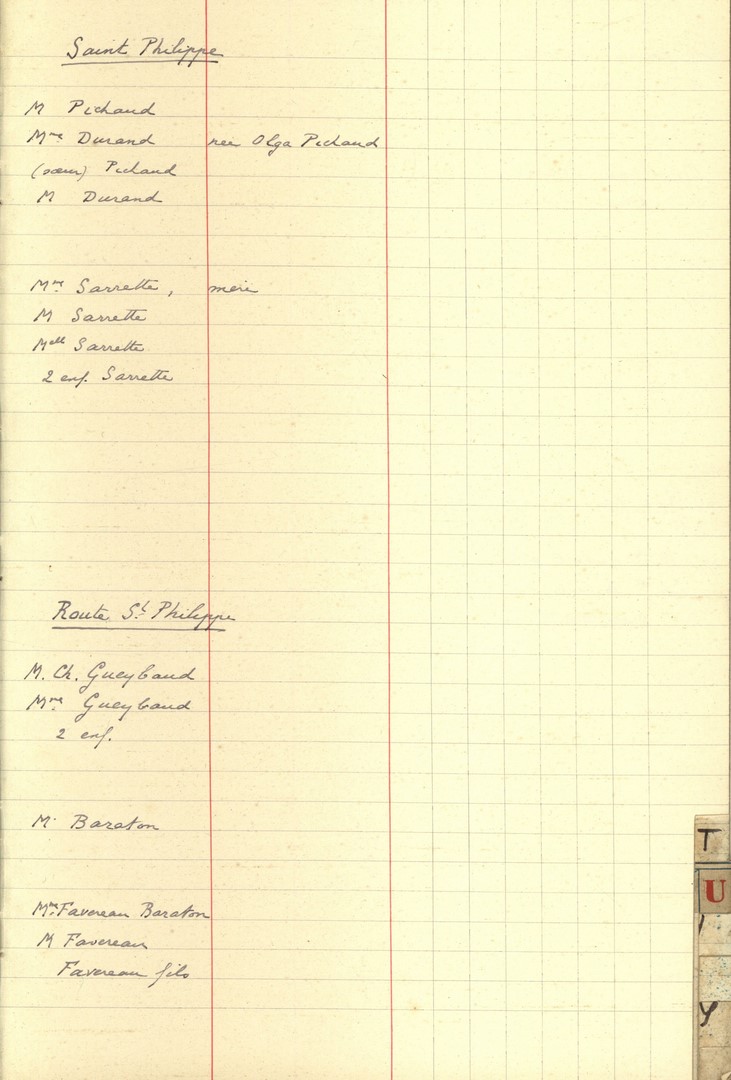 Saint Philippe
M Pichaud
Mme Durand née Olga Pichaud
(sœur) Pichaud
M Durand
Mme Sarrette, mère
M Sarrette
Melle Sarrette
2 enf. Sarrette
Route St Philippe
M. Ch. Gueybaud
Mme Gueybaud
2 enf.
M. Baraton
Mme Favereau Baraton
M Favereau
Favereau fils
T
U
Y